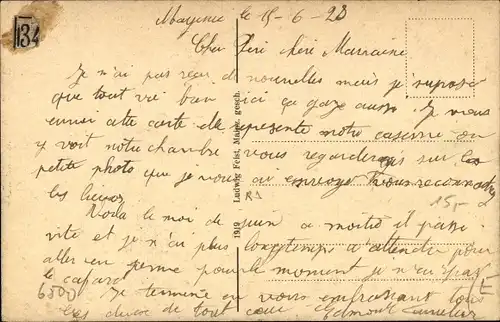 134
Mayence le 15-6-23
Cher Péré chère Marraine
Je n'ai pas reçu de nouvelles mais je suppose
que tout va bien ici ça gaze aussi. Je vous
envoi cette carte elle represente notre caserne on
y voit notre chambre vous regarderez sur la
petite photo que je vous ai envoyé vous reconnaitrez
les lieux
Voila le moi de juin a moitié il passe
vite et je n'ai plus longtemps a attendre pour
aller en perme pour le moment je n'ai pas
le cafard
Je termine en vous embrassant tous
les deux de tout coeur Edmond
1919 Ludwig Feist, Mainz. gesch.
R1
15,-
6500